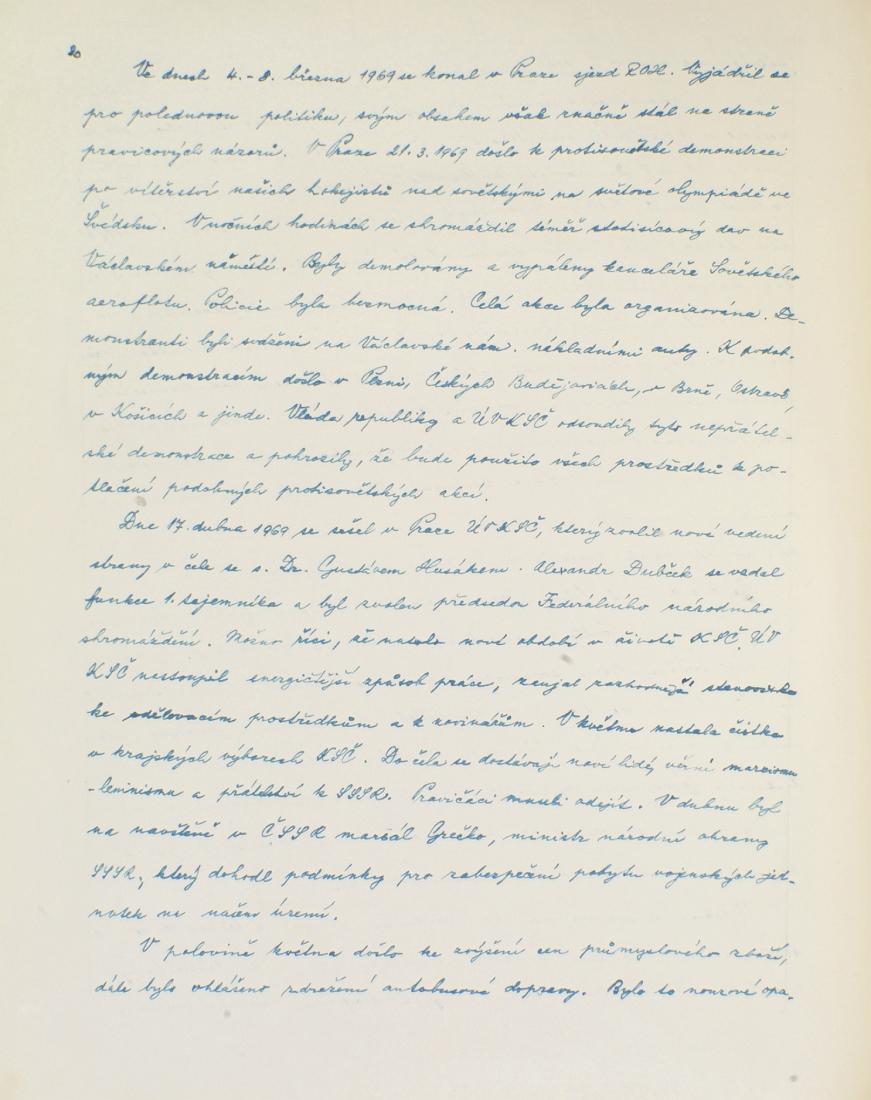 20
Ve dnech 4.-8. března 1969 se konal v Praze sjezd ROH. Vyjádřil se
pro polednovou politiku, svým obsahem však značně stál na straně
pravicových názorů. V Praze 21.3.1969 došlo k protisovětské demonstraci
po vítězství našich hokejistů nad sovětskými na světové olympiádě ve
Švédsku. V nočních hodinách se shromáždil téměř statisícový dav na
Václavském náměstí. Byly demolovány a vypáleny kanceláře Sovětského
aeroflotu. Policie byla bezmocná. Celá akce byla organizována. De-
monstranti byli sváženi na Václavské nám. nákladními auty. K podob-
ným demonstracím došlo v Plzni, Českých Budějovicích, v Brně, Ostravě,
v Košicích a jinde. Vláda republiky a ÚV KSČ odsoudily tyto nepřátel-
ské demonstrace a pohrozily, že bude použito všech prostředků k po-
tlačení podobných protisovětských akcí.
Dne 17. dubna 1969 se sešel v Praze ÚV KSČ, který zvolil nové vedení
strany v čele se s. Dr. Gustávem Husákem. Alexandr Dubček se vzdal
funkce 1. tajemníka a byl zvolen předsedou Federálního národního
shromáždění. Možno říci, že nastalo nové období v životě KSČ. ÚV
KSČ nastoupil energičtější způsob práce, zaujal rozhodnější stanoviska
ke sdělovacím prostředkům a k novinářům. V květnu nastala čistka
v krajských výborech KSČ. Do čela se dostávají noví lidé, věrní marxismu
-leninismu a přátelství k SSSR. Pravičáci museli odejít. V dubnu byl
na navštěvě v ČSSR maršál Grečko, ministr národní obrany
SSSR, který dohodl podmínky pro zabezpečení pobytu vojenských jed-
notek na našem území.
V polovině května došlo ke zvýšení cen průmyslového zboží,
dále bylo ohlášeno zdražení autobusové dopravy. Bylo to nouzové opa-